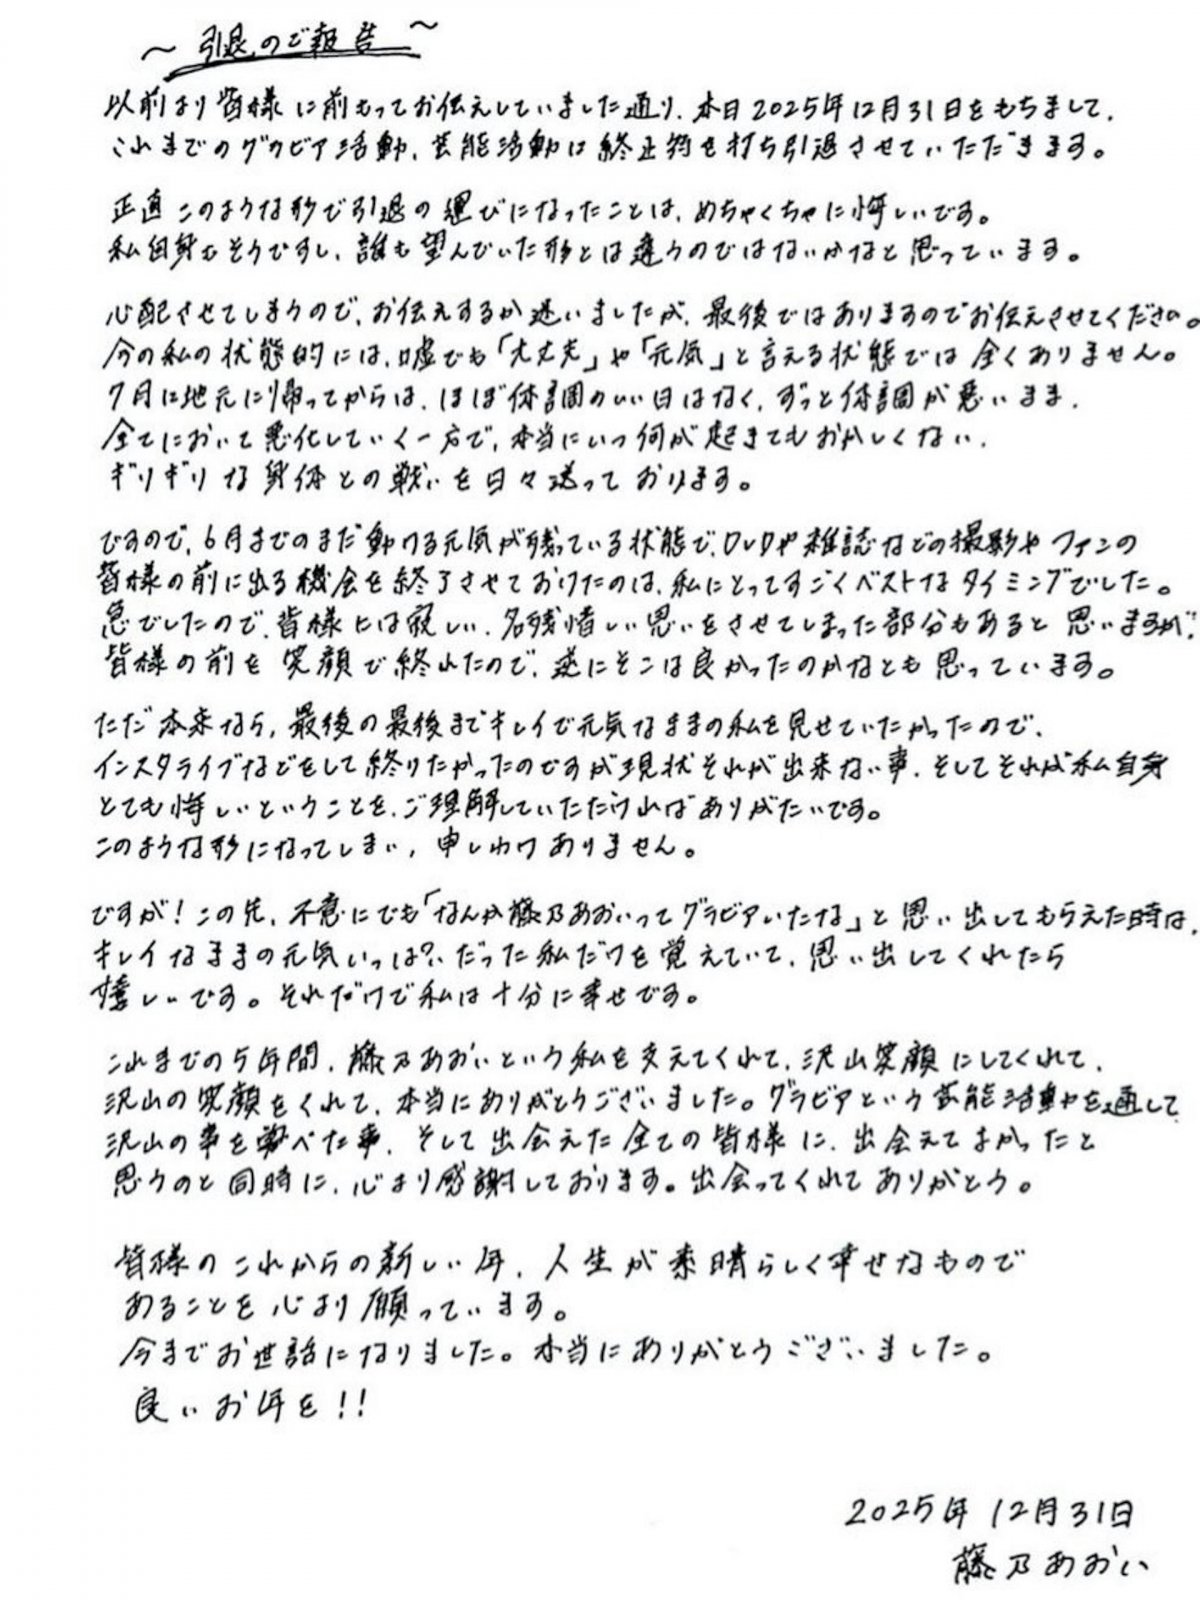 ～引退のご報告～
以前より皆様に前もってお伝えしていました通り、本日2025年12月31日をもちまして、
これまでのグラビア活動、芸能活動に終止符を打ち引退させていただきます。
正直このような形で引退の運びになったことは、めちゃくちゃに悔しいです。
私自身もそうですし、誰も望んでいた形とは違うのではないかなと思っています。
心配させてしまうので、お伝えするか迷いましたが、最後ではありますのでお伝えさせてください。
今の私の状態的には、嘘でも「大丈夫」や「元気」と言える状態では全くありません。
7月に地元に帰ってからは、ほぼ体調のいい日はなく、ずっと体調が悪いまま、
全てにおいて悪化していく一方で、本当にいつ何が起きてもおかしくない、
ギリギリな身体との戦いを日々送っております。
ですので、6月までのまだ動ける元気が残っている状態で、DVDや雑誌などの撮影やファンの
皆様の前に出る機会を終了させておけたのは、私にとってすごくベストなタイミングでした。
急でしたので、皆様には寂しい、名残惜しい思いをさせてしまった部分もあると思いますが、
皆様の前を笑顔で終れたので、逆にそこは良かったのかなとも思っています。
ただ本来なら、最後の最後までキレイで元気なままの私を見せていたかったので、
インスタライブなどをして終りたかったのですが現状それが出来ない事、そしてそれが私自身
とても悔しいということを、ご理解していただければありがたいです。
このような形になってしまい、申しわけありません。
ですが！この先、不意にでも「なんか藤乃あおいってグラビアいたな」と思い出してもらえた時は、
キレイなままの元気いっぱい だった私だけを覚えていて、思い出してくれたら
嬉しいです。それだけで私は十分に幸せです。
これまでの5年間、藤乃あおいという私を支えてくれて、沢山笑顔にしてくれて、
沢山の笑顔をくれて、本当にありがとうございました。グラビアという芸能活動を通して
沢山の事を学べた事、そして出会えた全ての皆様に、出会えてよかったと
思うのと同時に、心より感謝しております。出会ってくれてありがとう。
皆様のこれからの新しい年、人生が素晴らしく幸せなもので
あることを心より願っています。
今までお世話になりました。本当にありがとうございました。
良いお年を！！
2025年12月31日
藤乃あおい